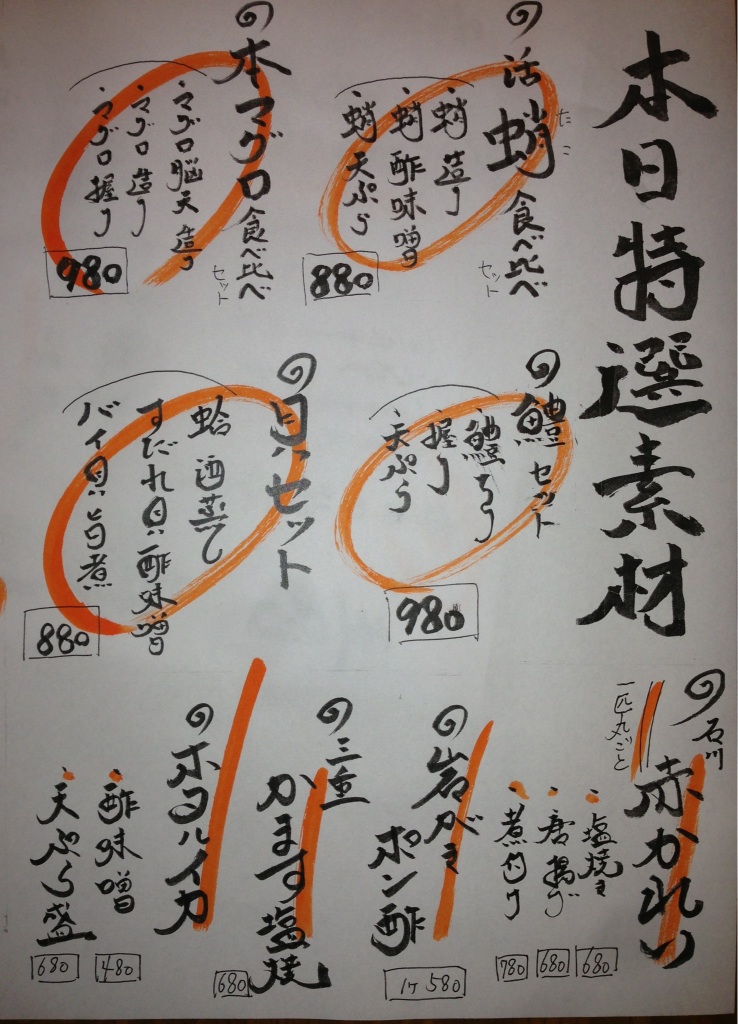 本日特選素材
活蛸食べ比べセット
たこ
・蛸造り
・蛸酢味噌
・蛸天ぷら
880
本マグロ食べ比べセット
・マグロ脳天造り
・マグロ造り
・マグロ握り
980
鱧セット
・鱧ちり
・握り
・天ぷら
980
貝セット
蛤酒蒸し
すだれ貝酢味噌
バイ貝旨煮
880
石川
赤かれい
一匹丸ごと
・塩焼き
680
・唐揚げ
680
・煮付け
780
岩がき
ポン酢
1ケ580
三重
かます塩焼
680
ホタルイカ
・酢味噌
480
・天ぷら盛
680